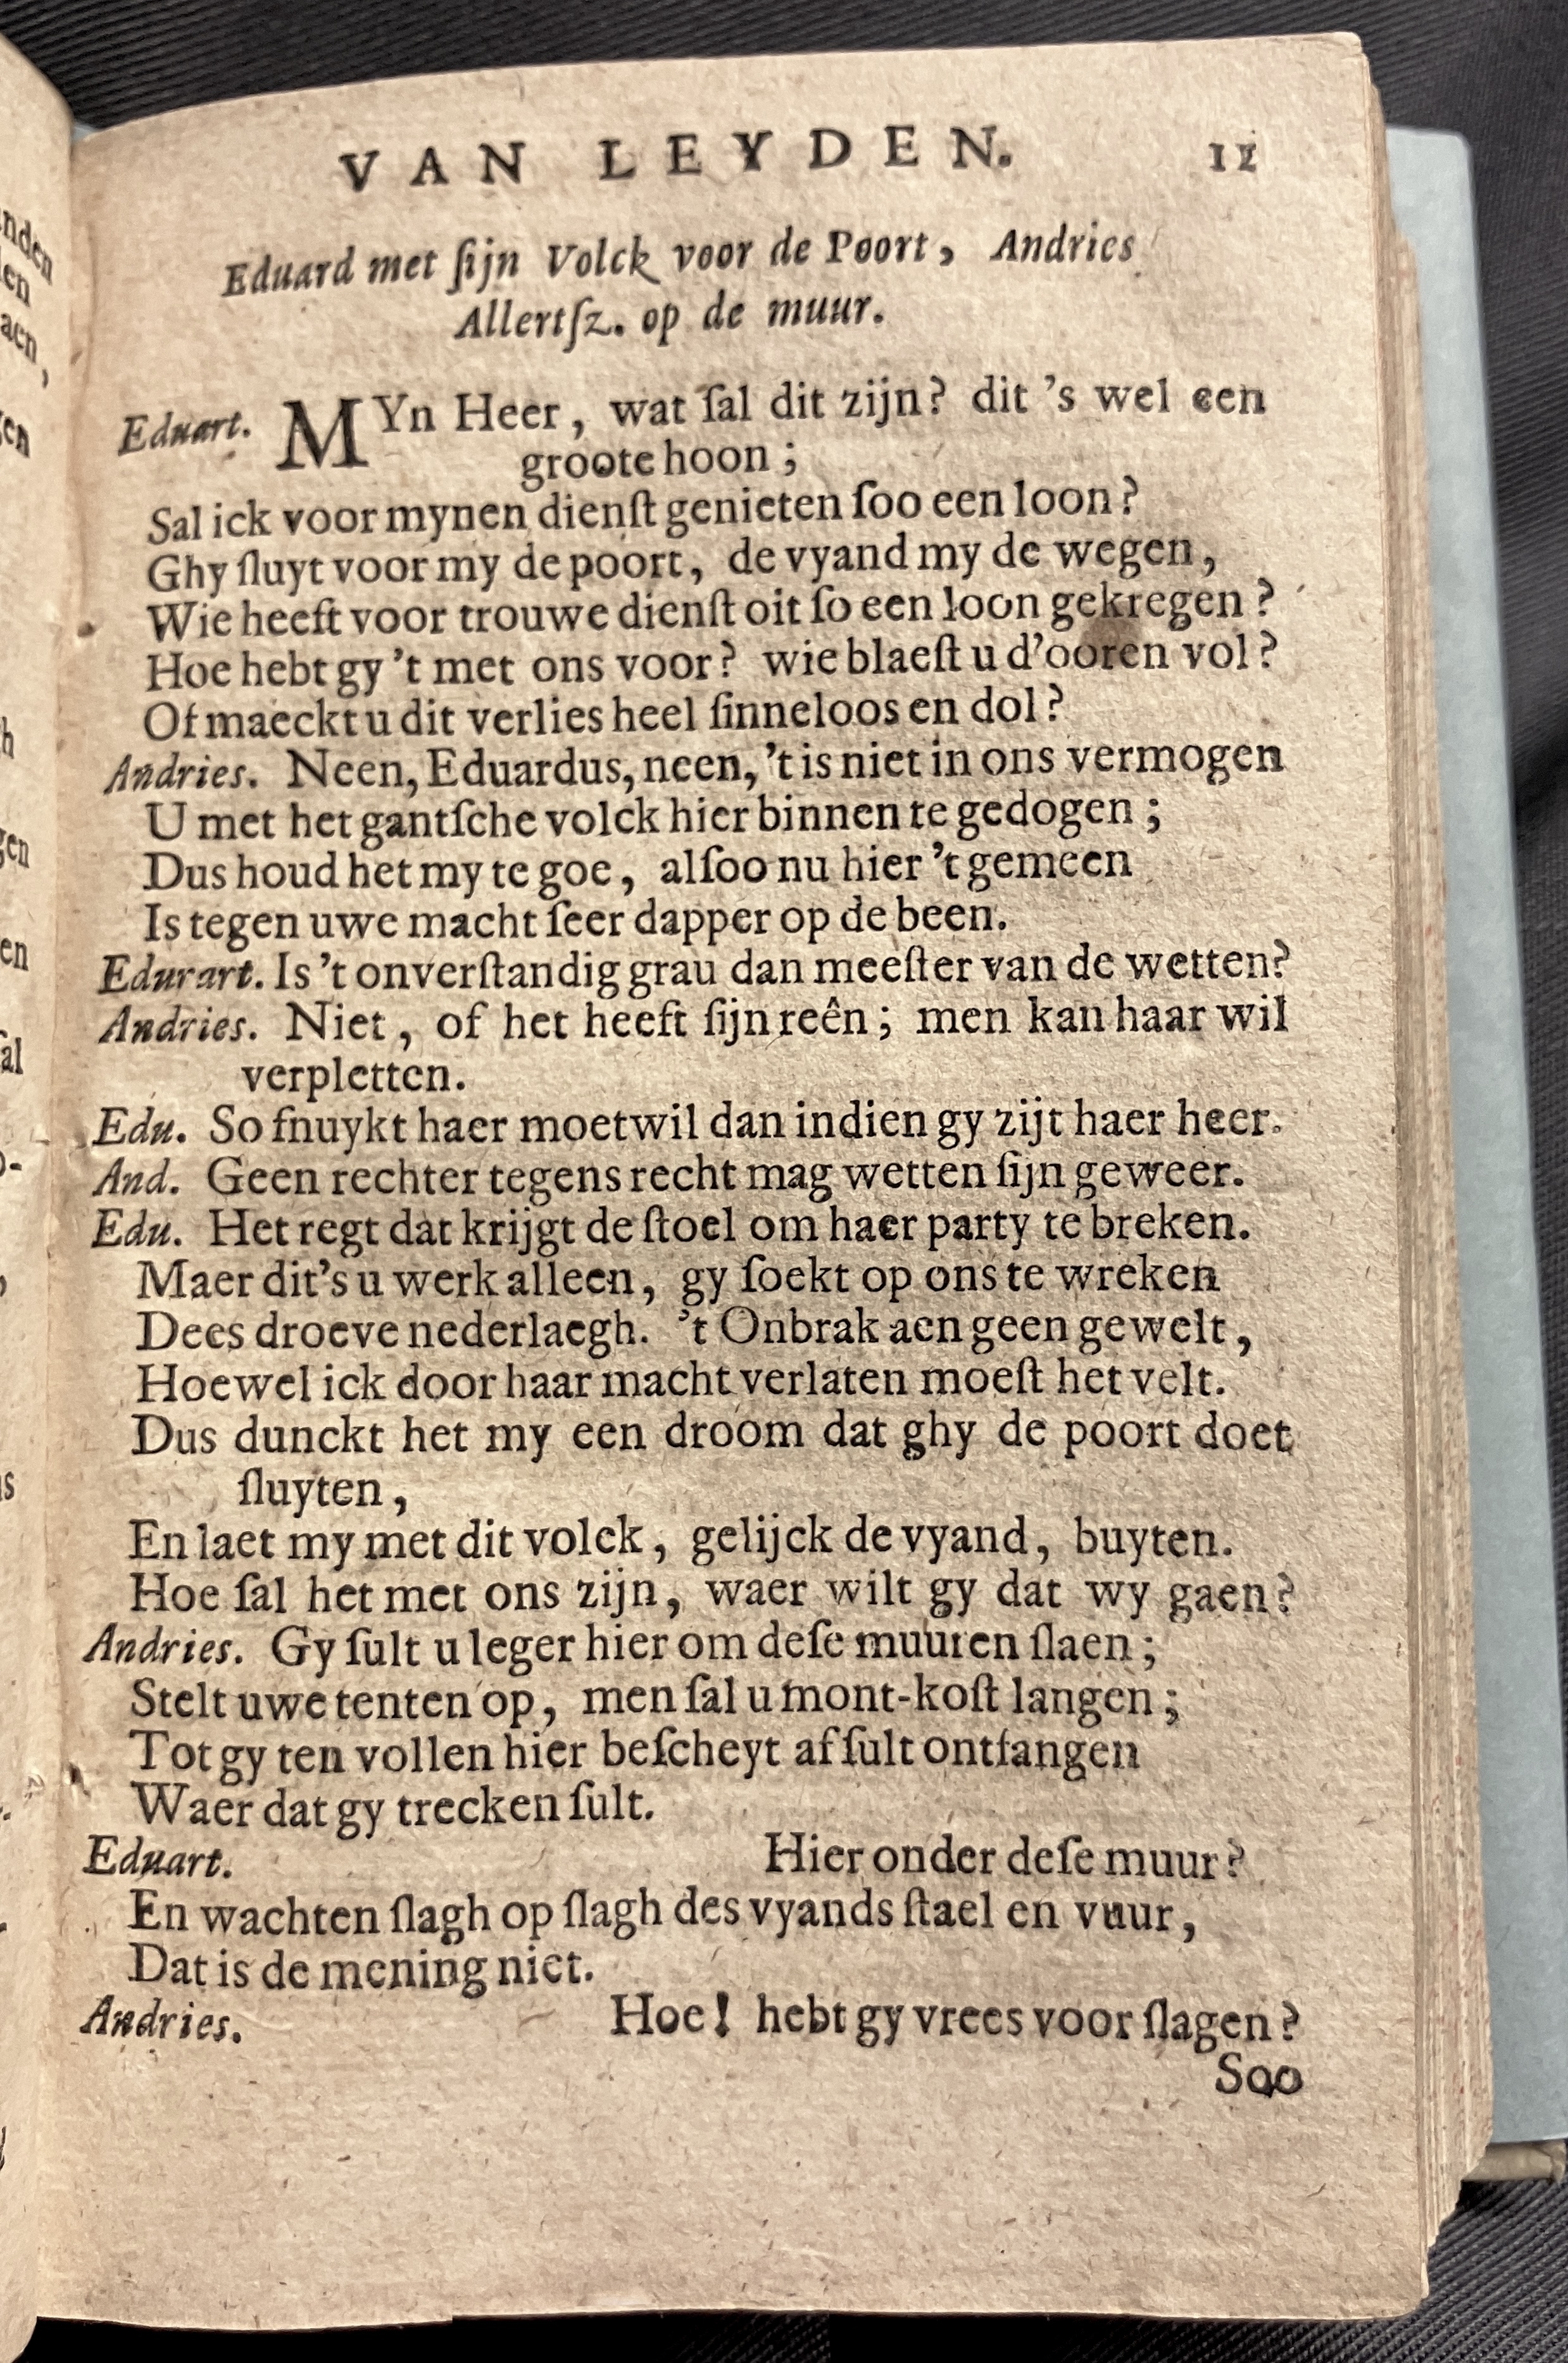 VAN LEYDEN. 11
Eduard met ſijn Volck voor de Poort, Andries
Allertſz. op de muur.
Eduart. MYn Heer, wat ſal dit zijn? dit 's wel een
groote hoon;
Sal ick voor mynen dienſt genieten ſoo een loon?
Ghy ſluyt voor my de poort, de vyand my de wegen,
Wie heeft voor trouwe dienſt oit ſo een loon gekregen?
Hoe hebt gy 't met ons voor? wie blaeſt u d'ooren vol?
Of maeckt u dit verlies heel ſinneloos en dol?
Andries. Neen, Eduardus, neen, 't is niet in ons vermogen
U met het gantſche volck hier binnen te gedogen;
Dus houd het my te goe, alſoo nu hier 't gemeen
Is tegen uwe macht ſeer dapper op de been.
Edurart. Is 't onverſtandig grau dan meeſter van de wetten?
Andries. Niet, of het heeft ſijn reên; men kan haar wil
verpletten.
Edu. So fnuykt haer moetwil dan indien gy zijt haer heer.
And. Geen rechter tegens recht mag wetten ſijn geweer.
Edu. Het regt dat krijgt de ſtoel om haer party te breken.
Maer dit's u werk alleen, gy ſoekt op ons te wreken
Dees droeve nederlaegh. 't Onbrak aen geen gewelt,
Hoewel ick door haar macht verlaten moeſt het velt.
Dus dunckt het my een droom dat ghy de poort doet
ſluyten,
En laet my met dit volck, gelijck de vyand, buyten.
Hoe ſal het met ons zijn, waer wilt gy dat wy gaen?
Andries. Gy ſult u leger hier om deſe muuren ſlaen;
Stelt uwe tenten op, men ſal u mont-koſt langen;
Tot gy ten vollen hier beſcheyt af ſult ontfangen
Waer dat gy trecken ſult.
Eduart. Hier onder deſe muur?
En wachten ſlagh op ſlagh des vyands ſtael en vuur,
Dat is de mening niet.
Andries. Hoe! hebt gy vrees voor ſlagen?
Soo